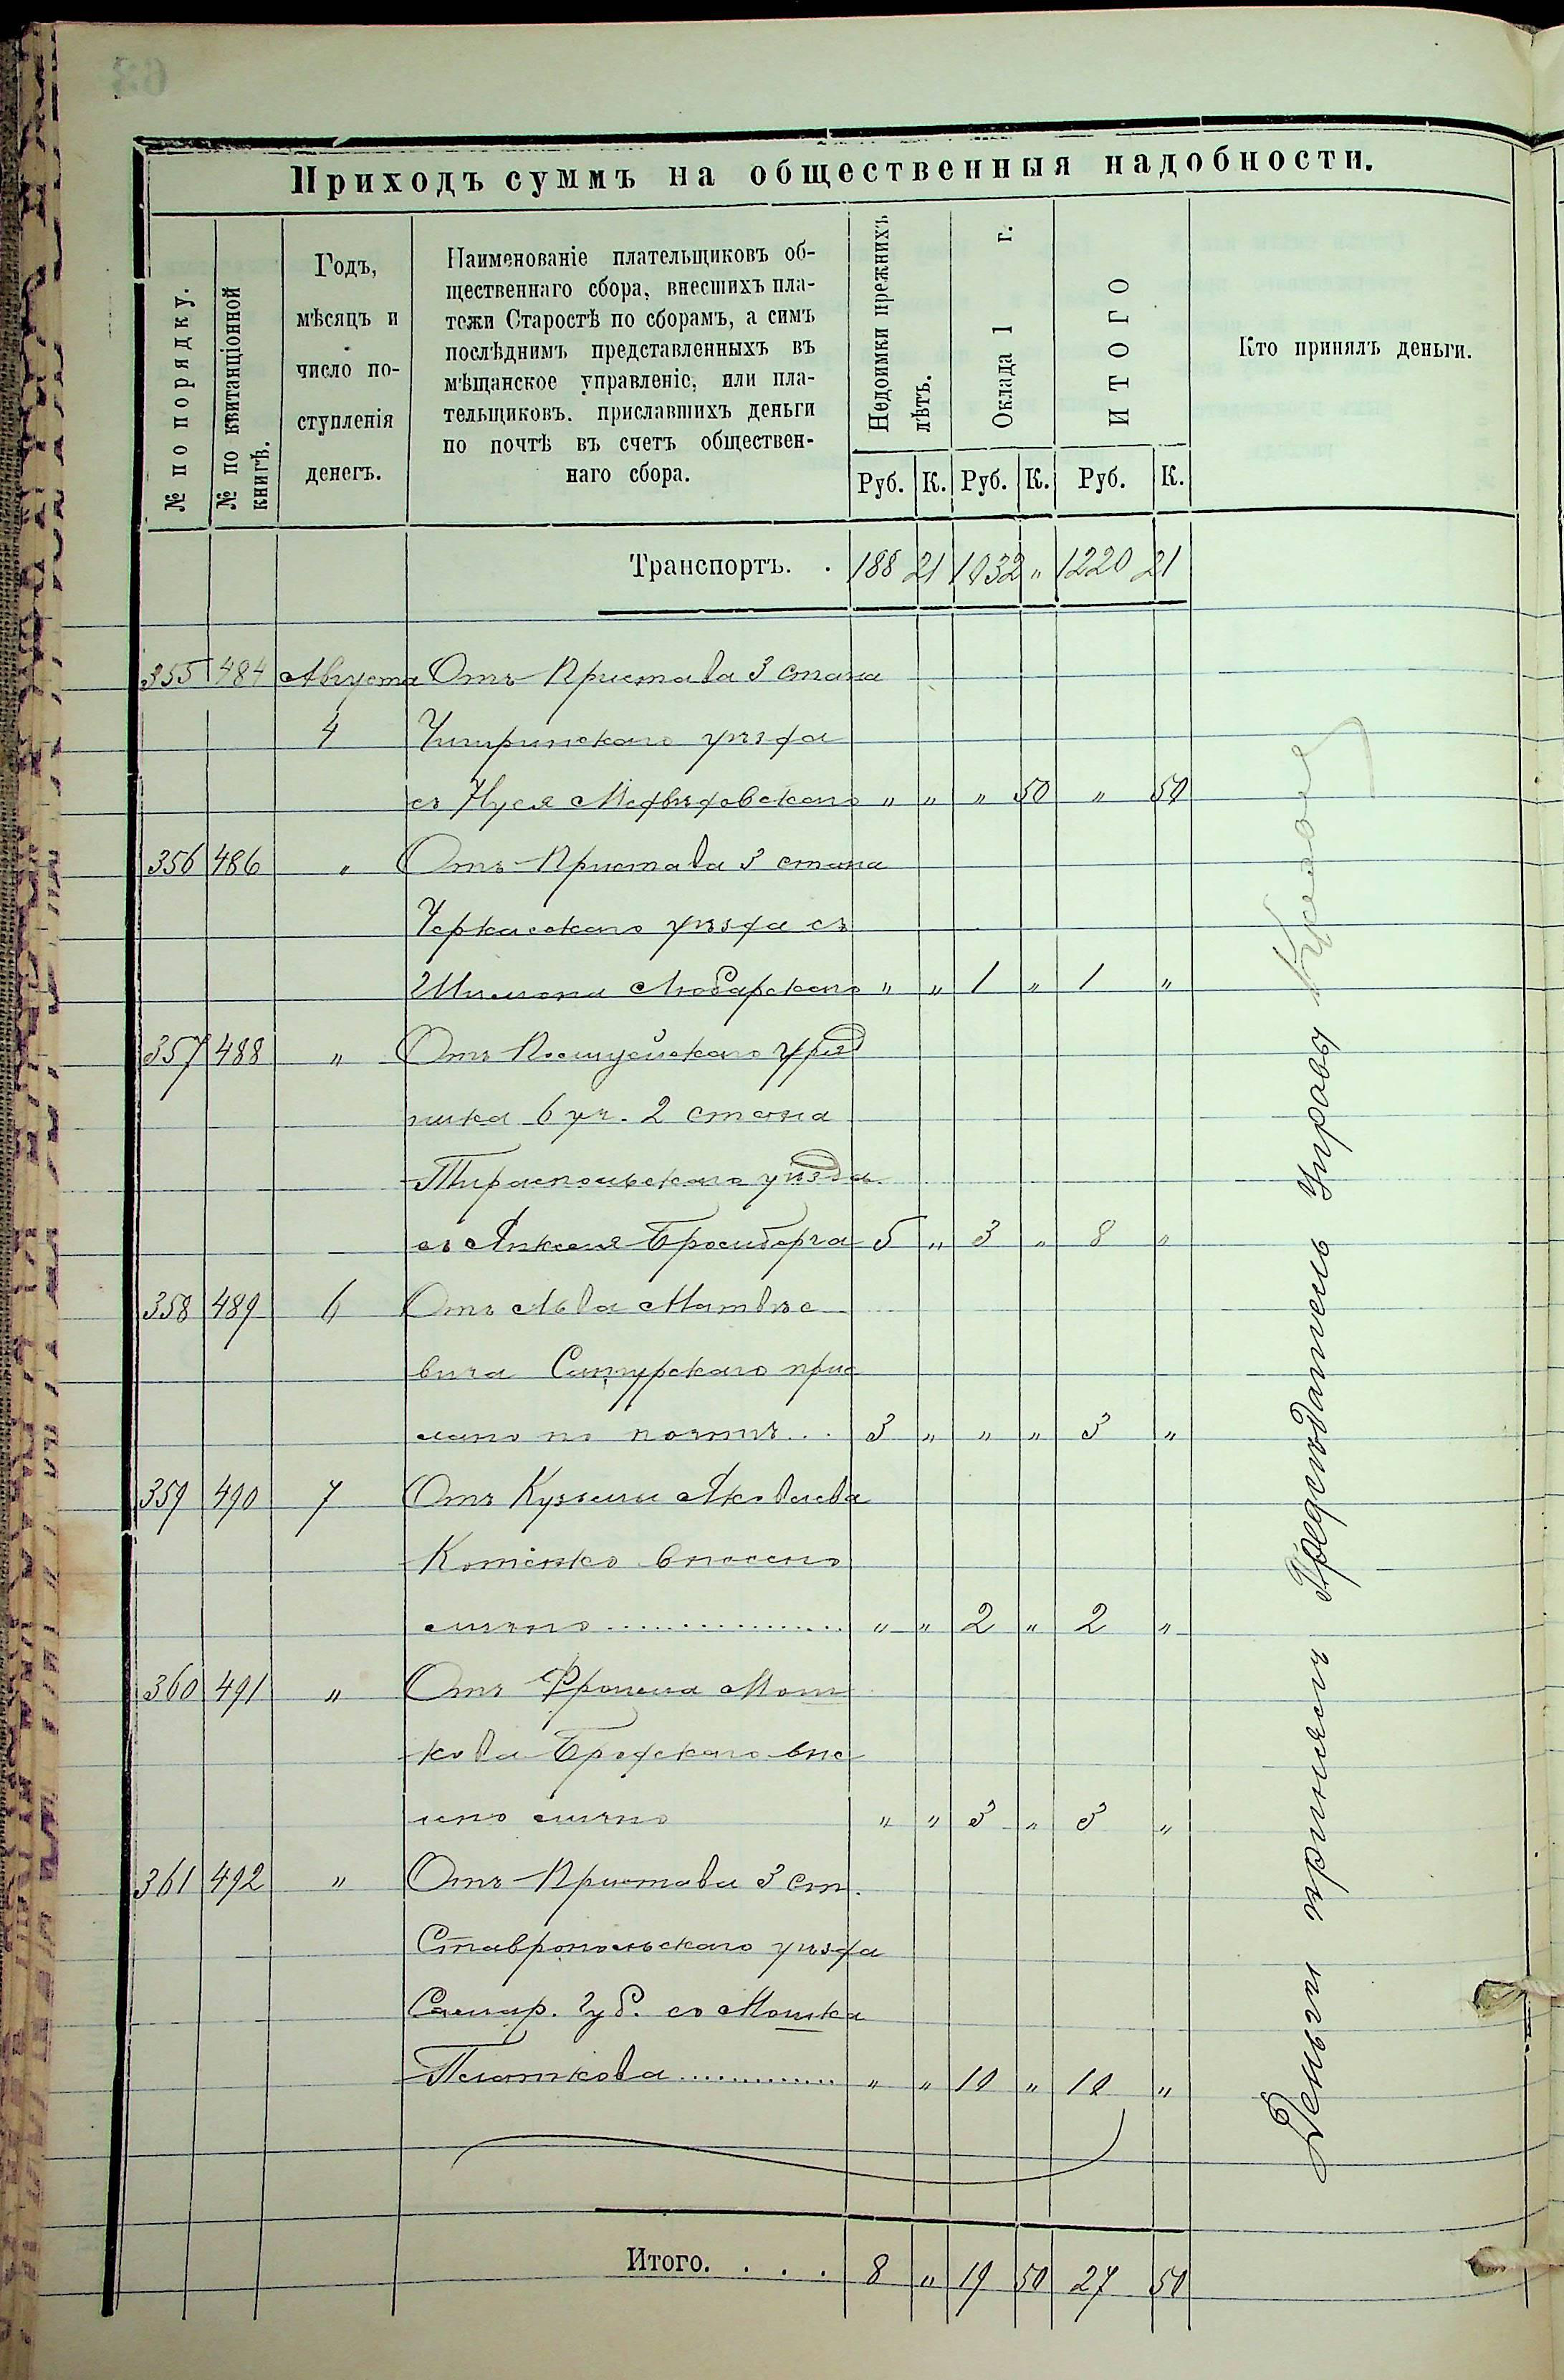 Приходъ суммъ на общественныя надобности.
№ по порядку.
№ по квитанціонной
книгѣ.
Годъ,
мѣсяцъ и
число по-
ступленія
денегъ.
Наименованіе плательщиковъ об-
щественнаго сбора, внесшихъ пла-
тежи Старостѣ по сборамъ, а симъ
послѣднимъ представленныхъ въ
мѣщанское управленіе, или пла-
тельщиковъ, приславшихъ деньги
по почтѣ въ счетъ обществен-
наго сбора.
Недоимки прежнихъ
лѣтъ.
Оклада 1 г.
ИТОГО
Кто принялъ деньги.
Руб. К. Руб. К. Руб. К.
Транспортъ. . 188 21 1032 „ 1220 21
355 484 Августа Отъ Пристава 3 стана
4 Чигиринскаго уѣзда
съ Нуся Медвѣдовскаго „ „ „ 50 „ 50
356 486 „ Отъ Пристава 3 стана
Черкасскаго уѣзда съ
Любарскаго „ „ 1 „ 1 „
357 488 „ Отъ Полицейскаго уряд
ника 6 уч. 2 стана
Тираспольскаго уѣзда
съ Янкеля 5 „ 3 „ 8 „
358 489 6 Отъ Льва Матвѣе
вича прис
лано по почтѣ... 3 „ „ „ 3 „
359 490 7 Отъ Кузьмы Яковлева
Котенко внесено
лично ............... „ „ 2 „ 2 „
360 491 „ Отъ Фроима Мош
кова Бродскаго вне
сено лично „ „ 3 „ 3 „
361 492 „ Отъ Пристава 3 ст.
Ставропольскаго уѣзда
Самар. Губ. съ Мошка
Платкова ............ „ „ 10 „ 10 „
Итого. . . . 8 „ 19 50 27 50
Деньги принялъ Предсѣдатель Управы